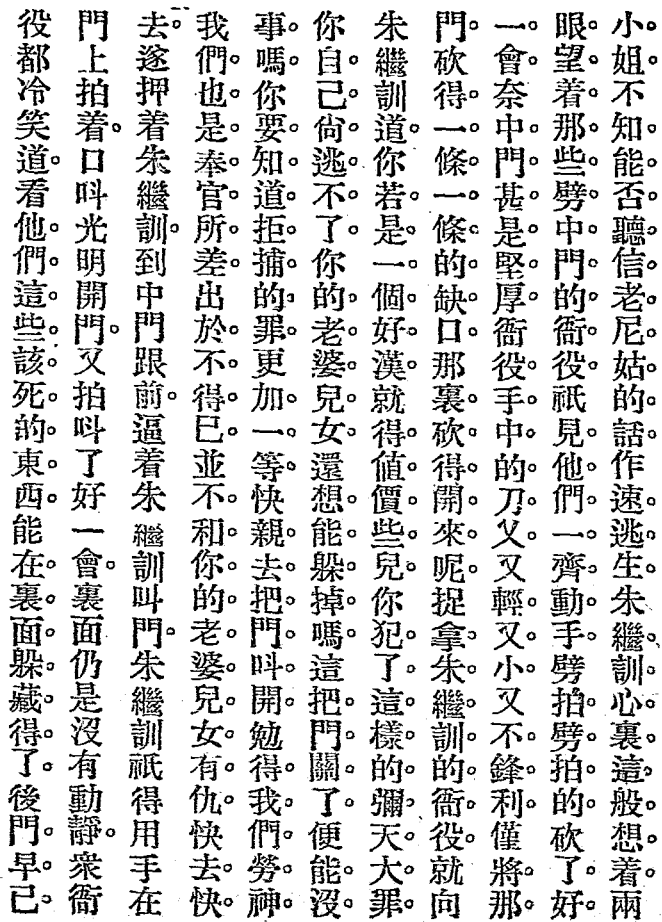 小姐不知能否聽信老尼姑的話作速逃生朱繼訓心裏這般想着兩
眼望着那些劈中門的衙役祇見他們一齊動手劈拍劈拍的砍了好
一會奈中門甚是堅厚衙役手中的刀又又輕又小又不鋒利僅將那
門砍得一條一條的缺口那裏砍得開來呢捉拿朱繼訓的衙役就向
朱繼訓道你若是一個好漢就得値價些兒你犯了這樣的彌天大罪
你自己尙逃不了你的老婆兒女還想能躱掉嗎這把門關了便能沒
事嗎你要知道拒捕的罪更加一等快親去把門呌開勉得我們勞神
我們也是奉官所差出於不得巳並不和你的老婆兒女有仇快去快
去遂押着朱繼訓到中門跟前逼着朱繼訓叫門朱繼訓祇得用手在
門上拍着口呌光明開門又拍呌了好一會裏面仍是沒有動靜衆衙
役都冷笑道看他們這些該死的東西能在裏面躱藏得了後門早已